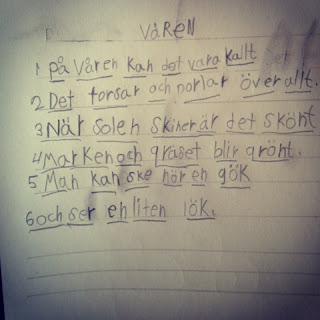 VåREN
1 På Våren kan det vara kallt
2 Det forsar och porlar överallt.
3 När solen skiner är det skönt
4 Marken och gräset blir grönt.
5 Man kan ske hör en gök
6 och ser en liten lök.